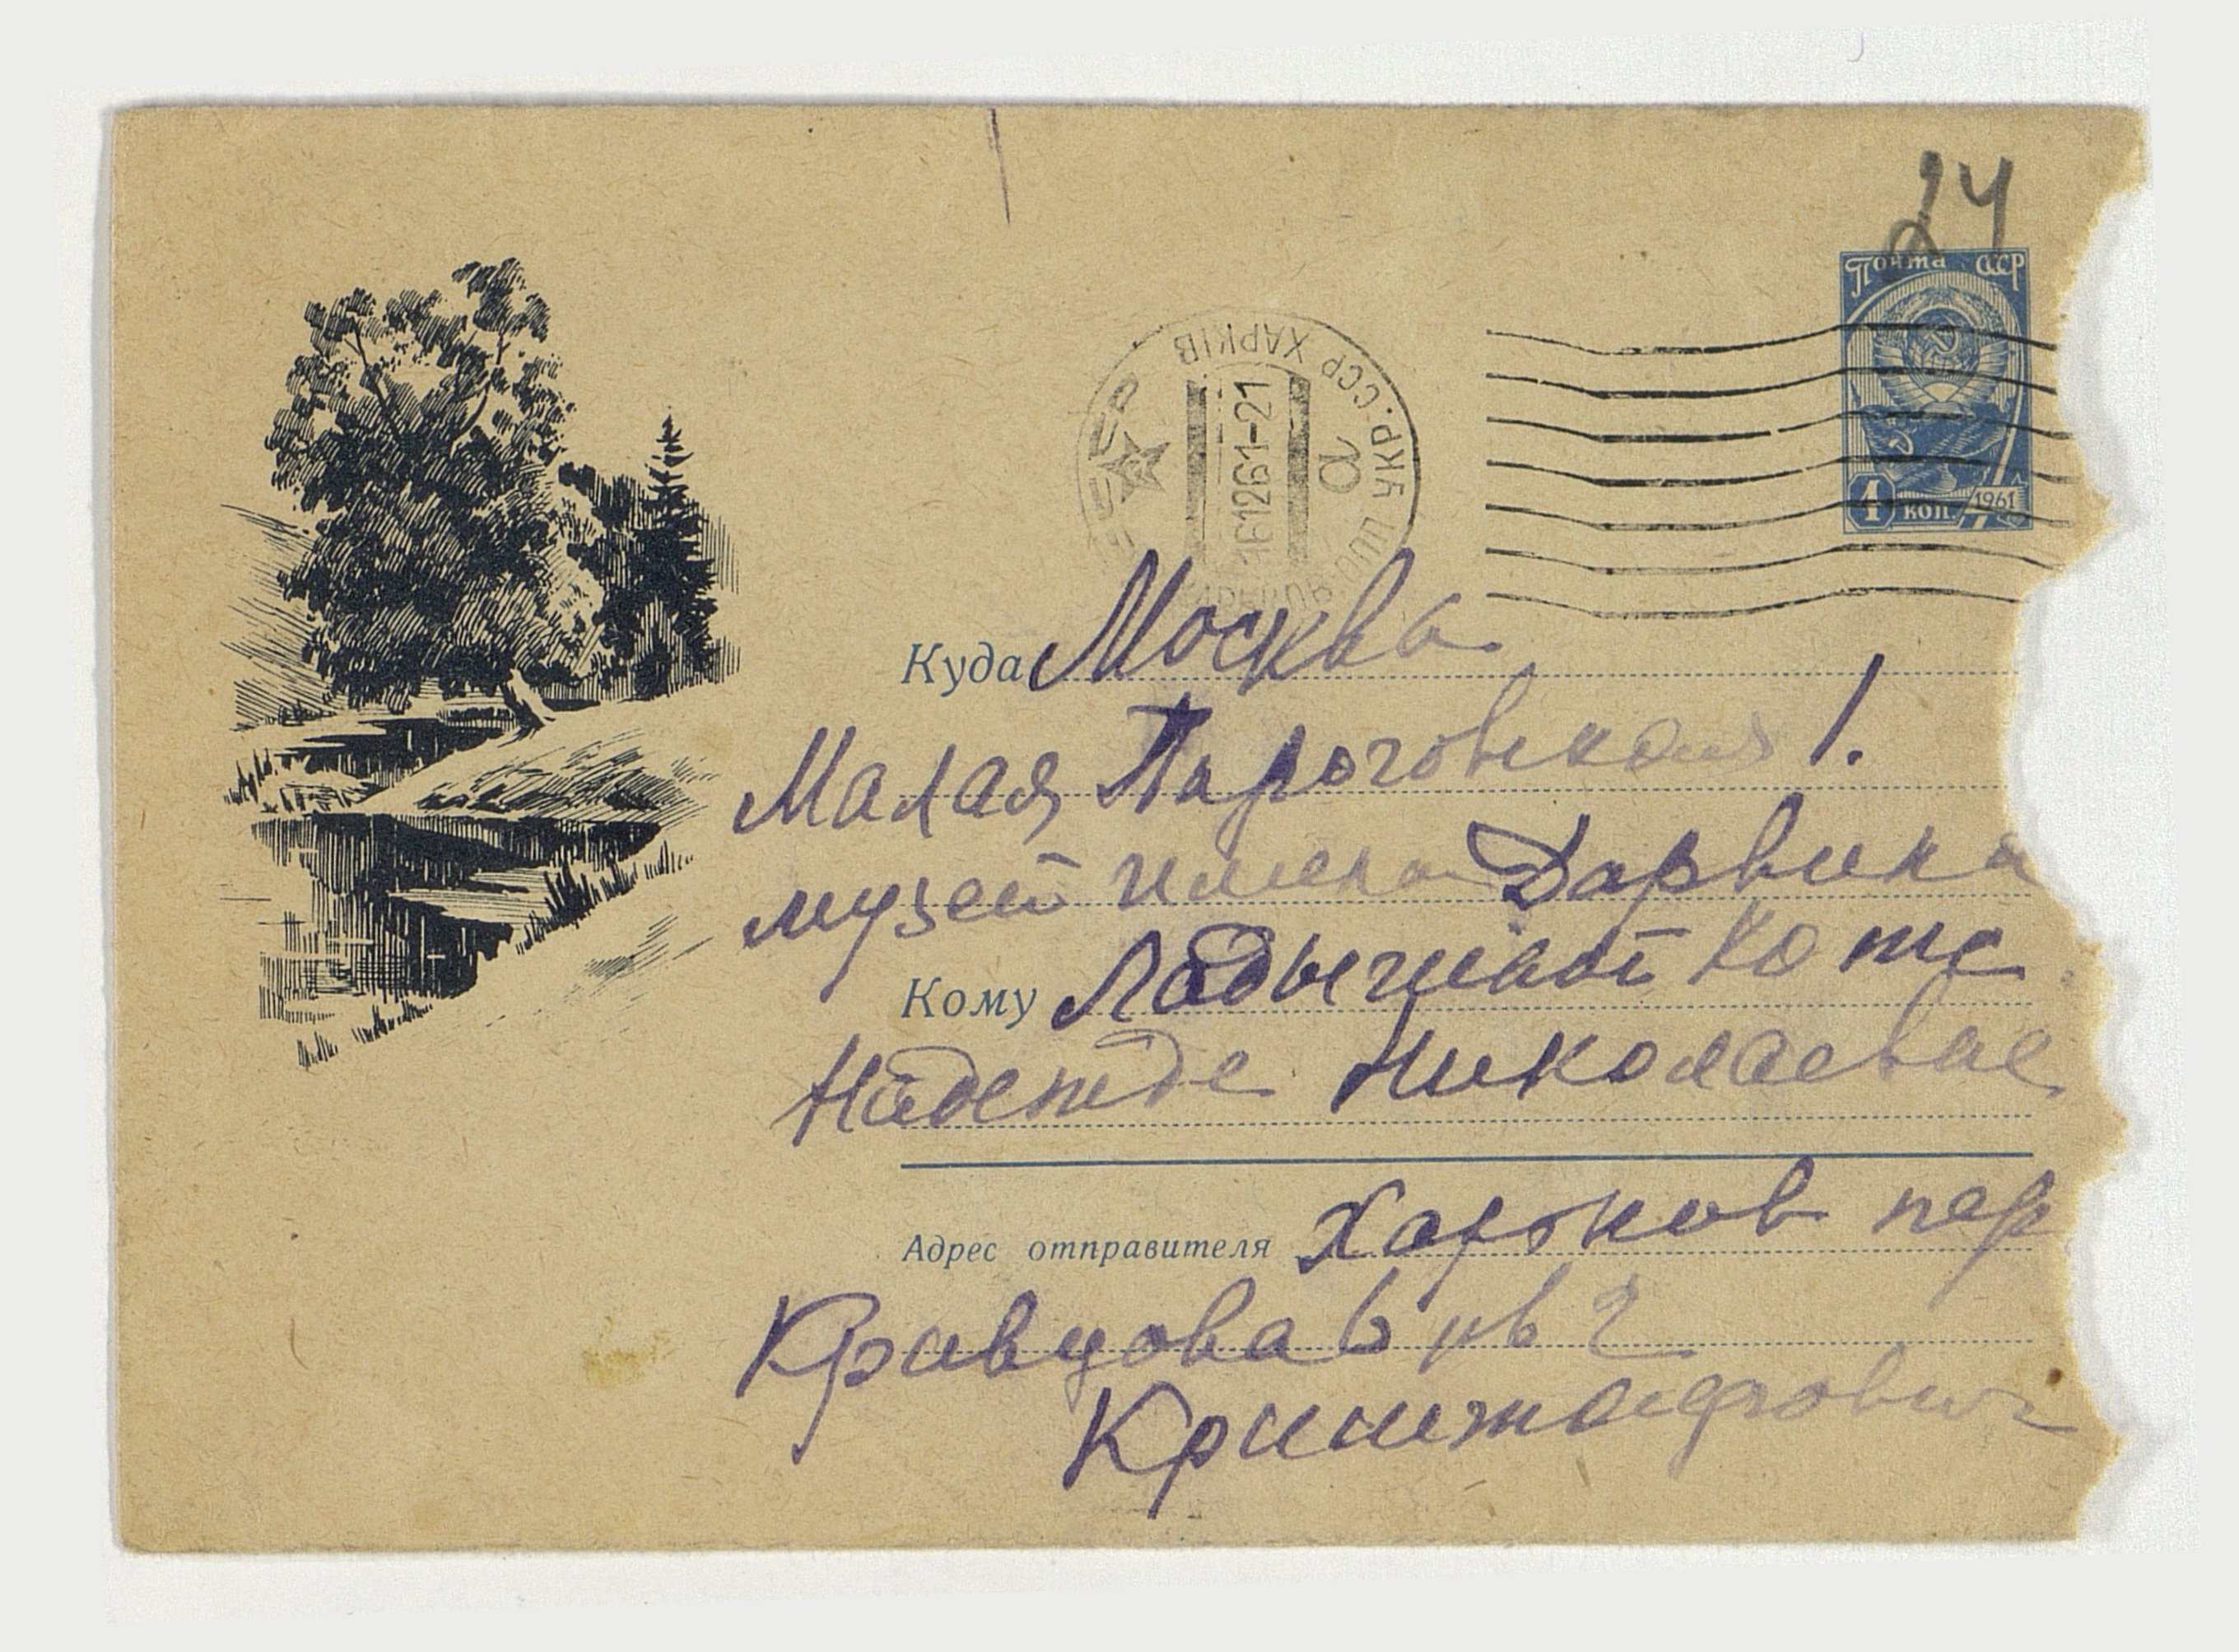 24
Почта СССР
4 коп. 1961
УКР. ССР ХАРКІВ
161261-21
а
Куда Москва
Малая Пироговская 1.
музей имени Дарвина
Кому Ладыгиной Котс
Надежде Николаевне
Адрес отправителя Харьков пер
Кравцова 6 кв 2